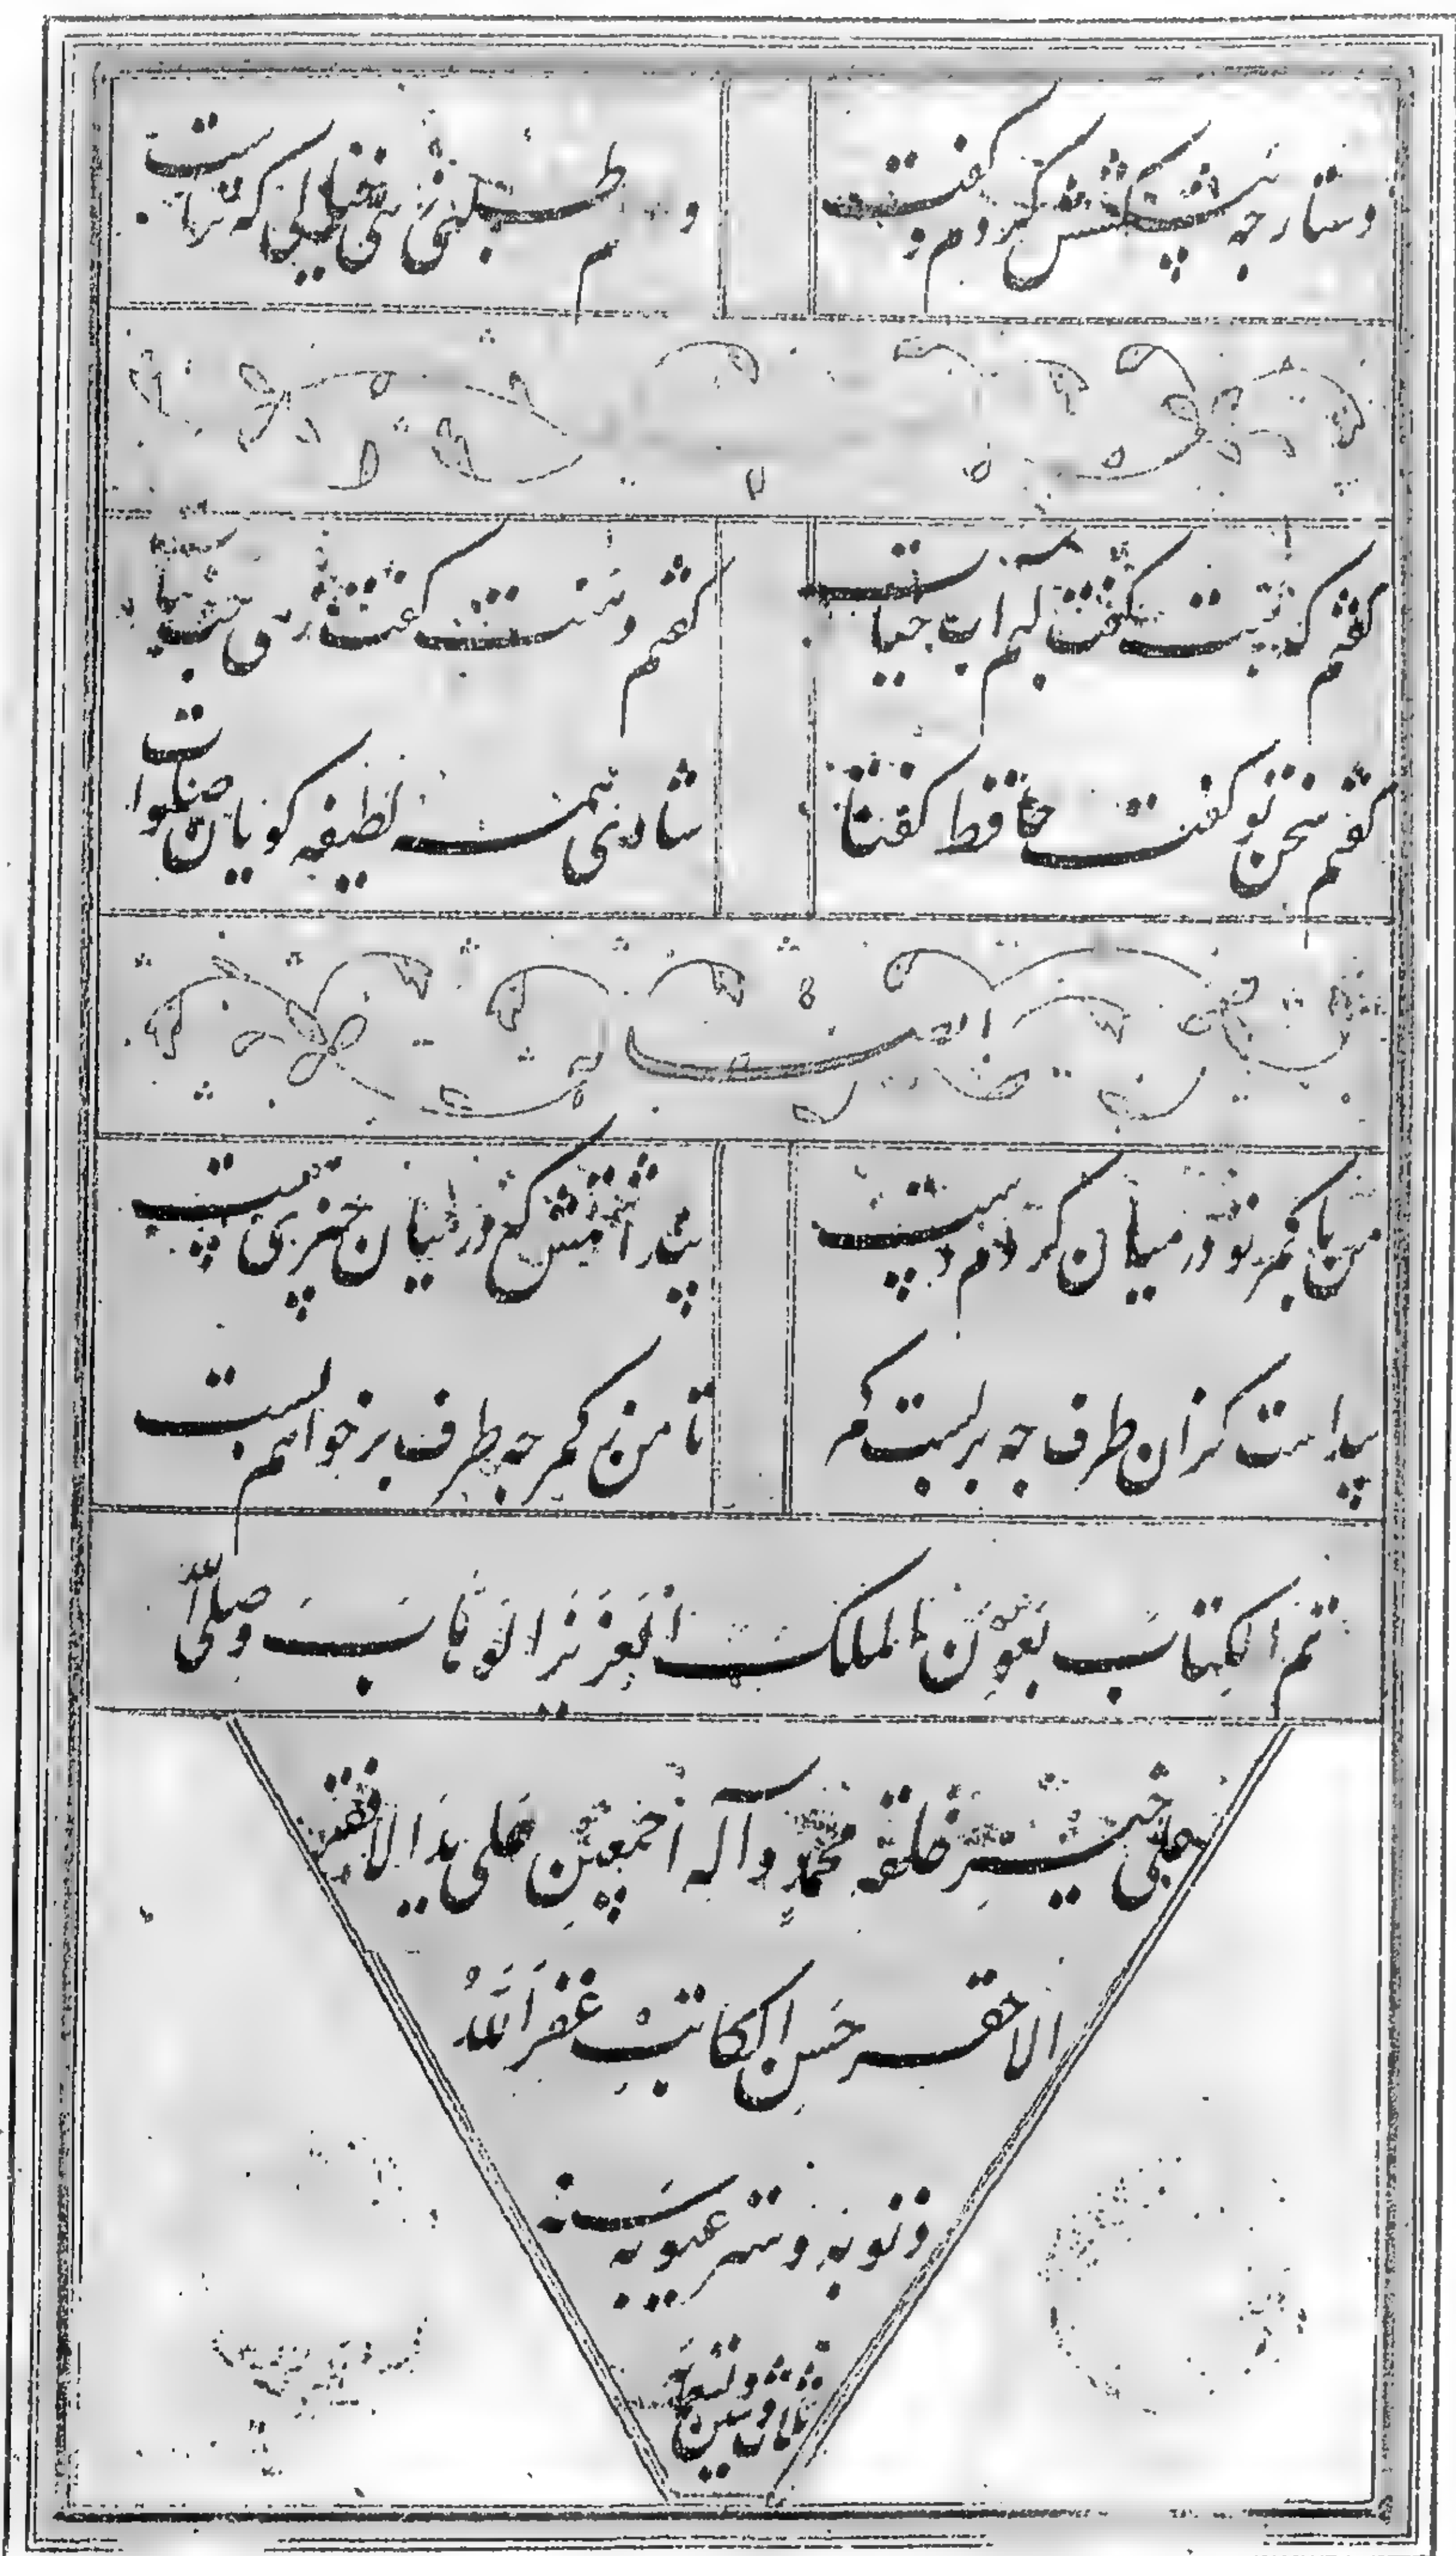 کفتم که لبت کفت لبم اب حیات
کفتم دهنت کفت زهی حب نبات
کفتم سخن تو کفت حافظ کفتا
شادی همه لطیفه کویان صلوات
ایضا له
من با کمر تو در میان کردم دست
پنداشتمش که در میان چیزی هست
پیداست کزان طرف چه بربست کمر
تا من ز کمر چه طرف برخواهم بست
تم الکتاب بعون الملک العزیز الوهاب وصلی الله
علی خیر خلقه محمد وآله اجمعین علی ید الافقر
الاحقر حسن الکاتب غفر الله
ذنوبه وستر عیوبه سنه
ثمان و تسعین